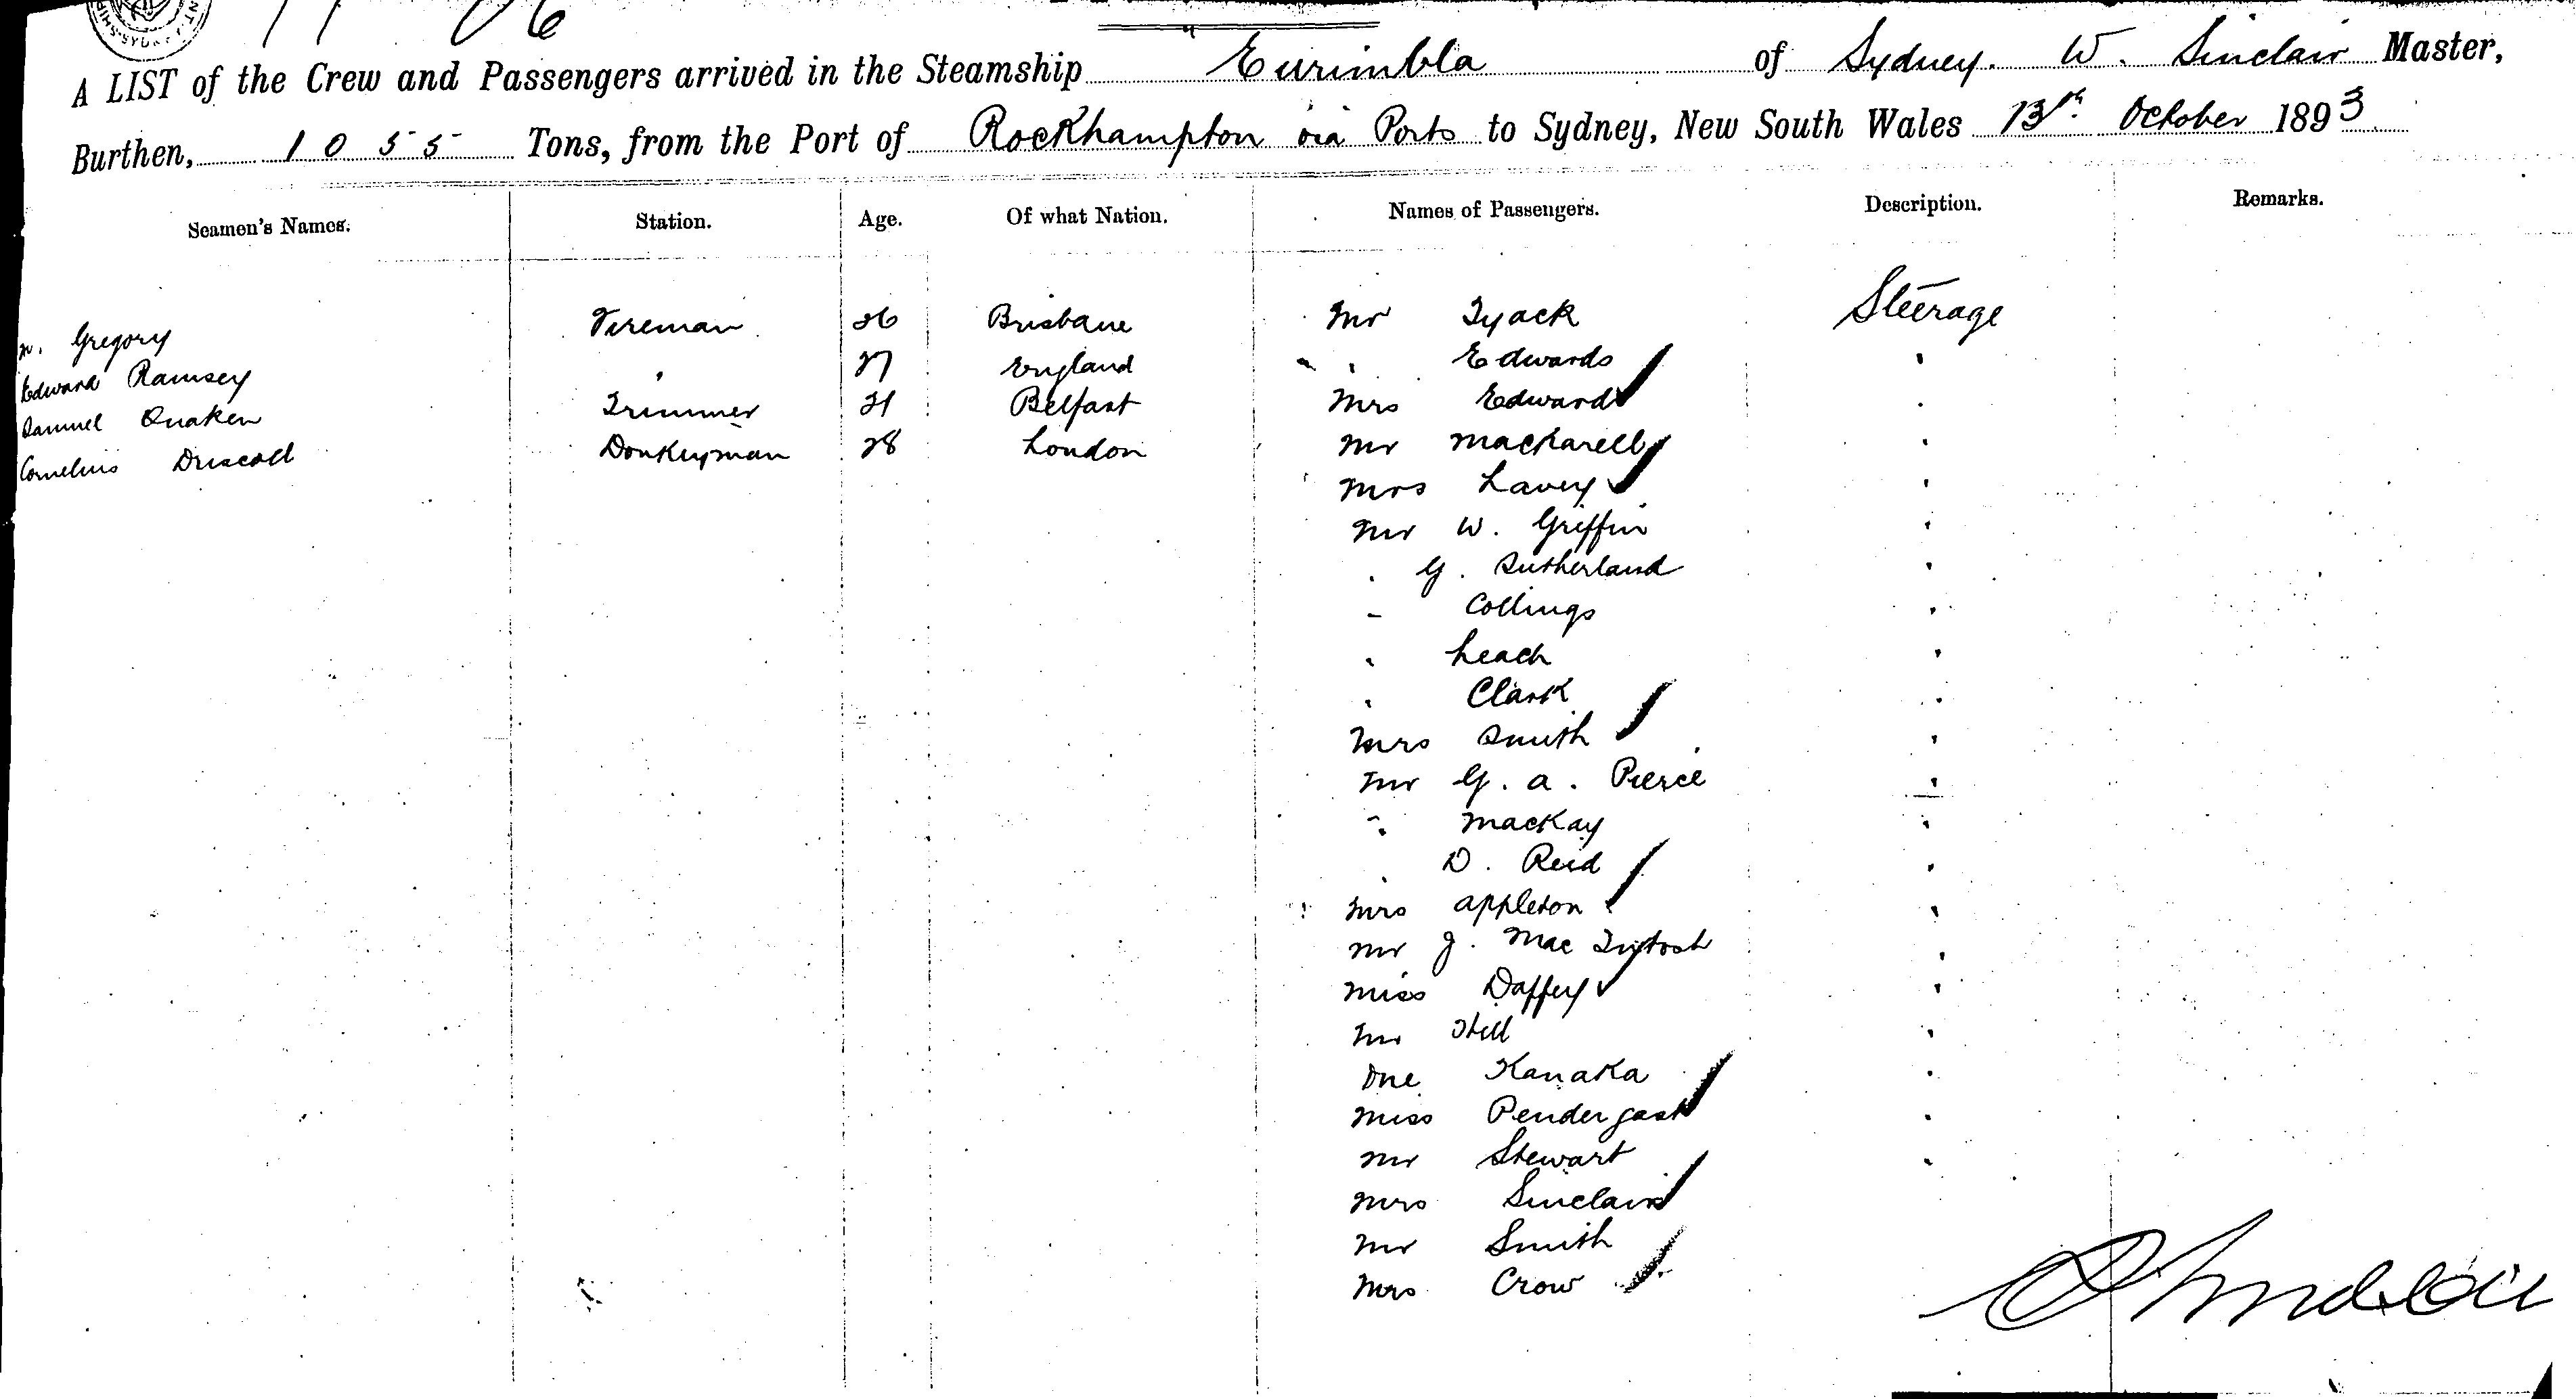 A LIST of the Crew and Passengers arrived in the Steamship Eurimbla of Sydney. W. Sinclair Master,
Burthen, 1055 Tons, from the Port of Rockhampton via Ports to Sydney, New South Wales 13th October 1893
Seamen's Names. Station. Age. Of what Nation. Names of Passengers. Description. Remarks.
Gregory Fireman 26 Brisbane Mr Tyack Steerage
Edward Ramsey " 27 England " Edwards "
Samuel Quaken Trimmer 21 Belfast Mrs Edwards "
Cornelius Driscoll Donkeyman 28 London Mr Mackarell "
Mrs Lavey "
Mr W. Griffin "
" G. Sutherland "
" Collings "
" Leach "
" Clark "
Mrs Smith "
Mr G. A. Pierce "
" Mackay "
" D. Reid "
Mrs Appleton "
Mr J. Mac Intosh "
Miss Daffey "
Mr Hill "
One Kanaka "
Miss Pendergast "
Mr Stewart "
Mrs Sinclair
Mr Smith
Mrs Crow